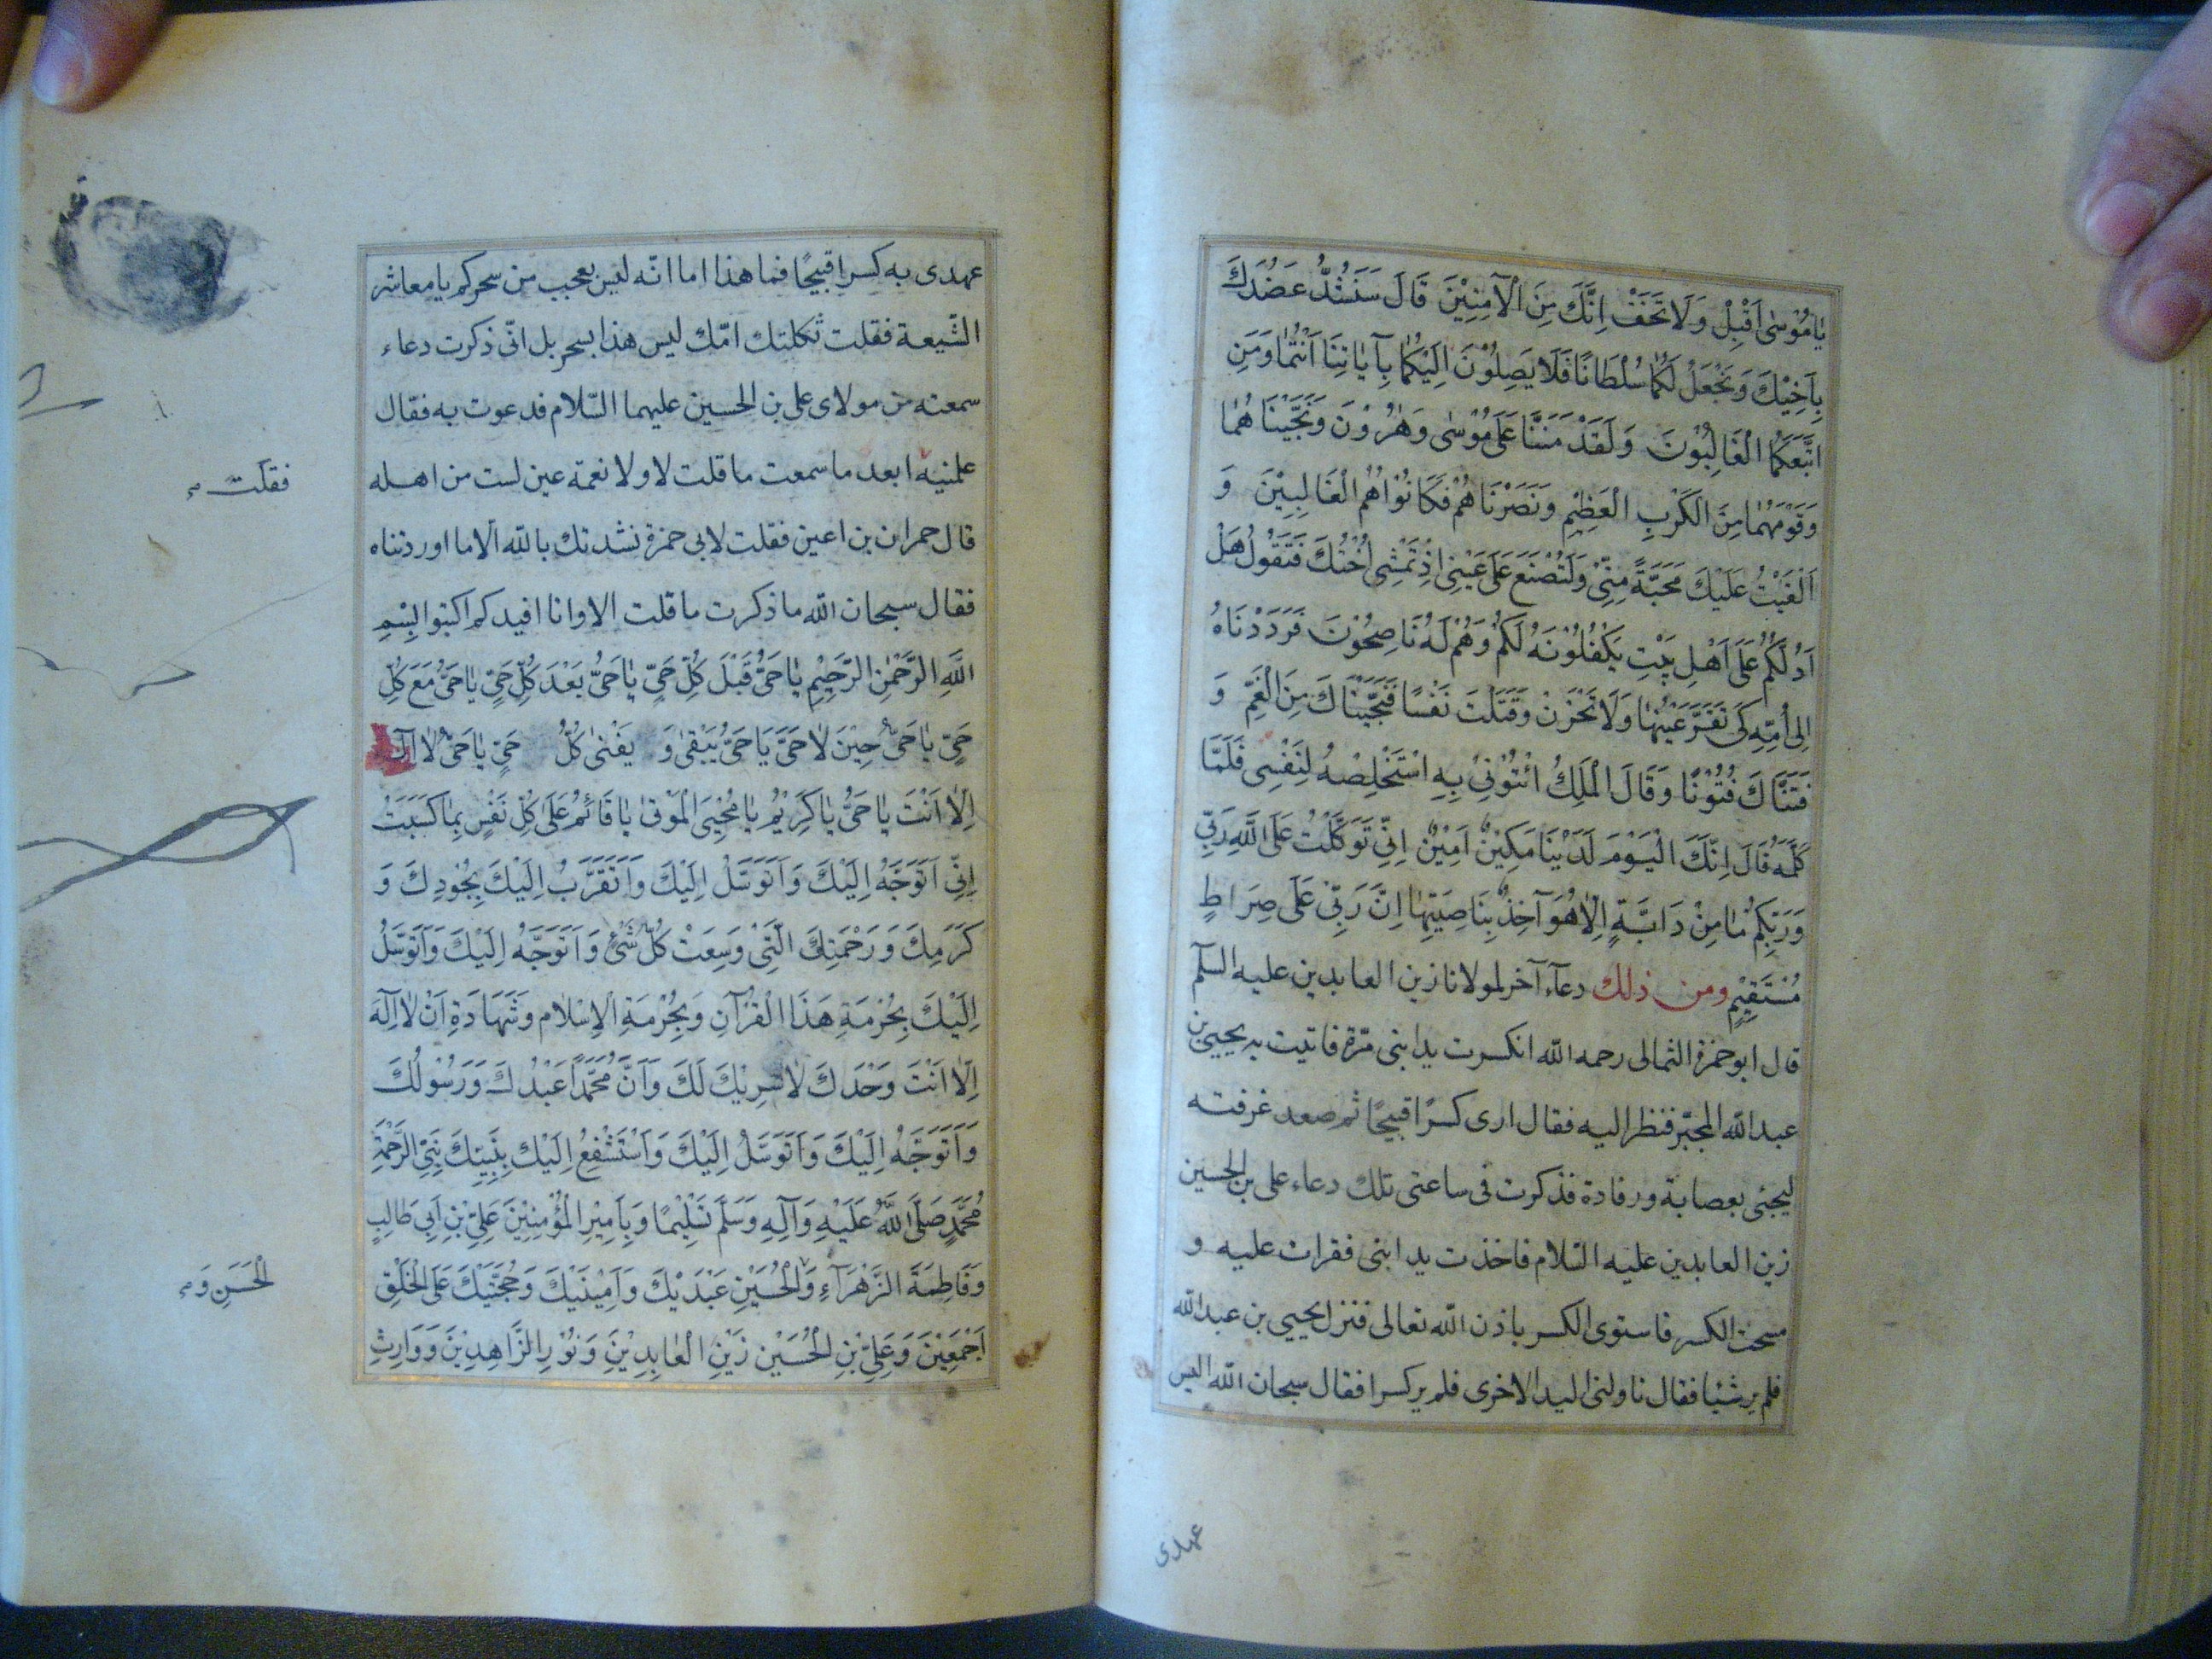 يَا مُوْسٰى اَقْبِلْ وَلَا تَخَفْ اِنَّكَ مِنَ الْآمِنِيْنَ قَالَ سَنَشُدُّ عَضُدَكَ
بِاَخِيْكَ وَنَجْعَلُ لَكُمَا سُلْطَانًا فَلَا يَصِلُوْنَ اِلَيْكُمَا بِآيَاتِنَا اَنْتُمَا وَمَنِ
اتَّبَعَكُمَا الْغَالِبُوْنَ وَلَقَدْ مَنَنَّا عَلَى مُوْسٰى وَهٰرُوْنَ وَنَجَّيْنَاهُمَا
وَقَوْمَهُمَا مِنَ الْكَرْبِ الْعَظِيْمِ وَنَصَرْنَاهُمْ فَكَانُوْا هُمُ الْغَالِبِيْنَ وَ
اَلْقَيْتُ عَلَيْكَ مَحَبَّةً مِنِّيْ وَلِتُصْنَعَ عَلَى عَيْنِى اِذْ تَمْشِى اُخْتُكَ فَتَقُوْلُ هَلْ
اَدُلُّكُمْ عَلَى اَهْلِ بَيْتٍ يَكْفُلُوْنَهُ لَكُمْ وَهُمْ لَهُ نَاصِحُوْنَ فَرَدَدْنَاهُ
اِلَى اُمِّهِ كَىْ تَقَرَّ عَيْنُهَا وَلَا تَحْزَنْ وَقَتَلْتَ نَفْسًا فَنَجَّيْنَاكَ مِنَ الْغَمِّ وَ
فَتَنَّاكَ فُتُوْنًا وَقَالَ الْمَلِكُ ائْتُوْنِىْ بِهِ اَسْتَخْلِصْهُ لِنَفْسِى فَلَمَّا
كَلَّمَهُ قَالَ اِنَّكَ الْيَوْمَ لَدَيْنَا مَكِيْنٌ اَمِيْنٌ اِنِّى تَوَكَّلْتُ عَلَى اللَّهِ رَبِّى
وَرَبِّكُمْ مَا مِنْ دَابَّةٍ اِلَّا هُوَ آخِذٌ بِنَاصِيَتِهَا اِنَّ رَبِّىْ عَلَى صِرَاطٍ
مُسْتَقِيْمٍ ومن ذلك دعآء آخر لمولانا زين العابدين عليه السلم
قال ابو حمزة الثمالى رحمه الله انكسرت يد ابنى مرّة فاتيت به يحيى بن
عبد الله المجبّر فنظر اليه فقال ارى كسرًا قبيحًا ثم صعد غرفته
ليجئ بعصابة ورفادة فذكرت فى ساعتى تلك دعاء على بن الحسين
زين العابدين عليه السّلام فاخذت يد ابنى فقرات عليه و
مسحت الكسر فاستوى الكسر باذن الله تعالى فنزل يحيى بن عبد الله
فلم ير شيئا فقال ناولنى اليد الاخرى فلم ير كسرا فقال سبحان الله اليس
عهدى
عهدى به كسرا قبيحًا فما هذا اما انّه ليس بعجب من سحركم يا معاشر
الشّيعة فقلت ثكلتك امّك ليس هذا بسحر بل انّى ذكرت دعاء
سمعته من مولاى على بن الحسين عليهما السّلام فدعوت به فقال
علمنيه ابعد ما سمعت ما قلت لا ولا نعمة عين لست من اهله
فقلت
قال حمران بن اعين فقلت لابى حمزة نشدتك بالله الّا ما اوردتناه
فقال سبحان الله ما ذكرت ما قلت الا وانا افيدكم اكتبوا بِسْمِ
اللَّهِ الرَّحْمٰنِ الرَّحِيْمِ يَا حَىُّ قَبْلَ كُلِّ حَىٍّ يَا حَىُّ بَعْدَ كُلِّ حَىٍّ يَا حَىُّ مَعَ كُلِّ
حَىٍّ يَا حَىُّ حِيْنَ لَا حَىَّ يَا حَىُّ يَبْقٰى وَ يَفْنٰى كُلُّ حَىٍّ يَا حَىُّ لَا اِلٰهَ
اِلَّا اَنْتَ يَا حَىُّ يَا كَرِيْمُ يَا مُحْيِىَ الْمَوْتٰى يَا قَائِمُ عَلَى كُلِّ نَفْسٍ بِمَا كَسَبَتْ
اِنِّى اَتَوَجَّهُ اِلَيْكَ وَاَتَوَسَّلُ اِلَيْكَ وَاَتَقَرَّبُ اِلَيْكَ بِجُوْدِكَ وَ
كَرَمِكَ وَرَحْمَتِكَ الَّتِىْ وَسِعَتْ كُلَّ شَىْءٍ وَاَتَوَجَّهُ اِلَيْكَ وَاَتَوَسَّلُ
اِلَيْكَ بِحُرْمَةِ هَذَا الْقُرْآنِ وَبِحُرْمَةِ الْاِسْلَامِ وَشَهَادَةِ اَنْ لَا اِلٰهَ
اِلَّا اَنْتَ وَحْدَكَ لَا شَرِيْكَ لَكَ وَاَنَّ مُحَمَّدًا عَبْدُكَ وَرَسُوْلُكَ
وَاَتَوَجَّهُ اِلَيْكَ وَاَتَوَسَّلُ اِلَيْكَ وَاَسْتَشْفِعُ اِلَيْكَ بِنَبِيِّكَ نَبِىِّ الرَّحْمَةِ
مُحَمَّدٍ صَلَّى اللَّهُ عَلَيْهِ وَآلِهِ وَسَلَّمَ تَسْلِيْمًا وَبِاَمِيْرِ الْمُؤْمِنِيْنَ عَلِىِّ بْنِ اَبِى طَالِبٍ
وَفَاطِمَةَ الزَّهْرَآءِ وَالْحُسَيْنِ عَبْدَيْكَ وَاَمِيْنَيْكَ وَحُجَّتَيْكَ عَلَى الْخَلْقِ
الْحَسَنِ وَ
اَجْمَعِيْنَ وَعَلِىِّ بْنِ الْحُسَيْنِ زَيْنِ الْعَابِدِيْنَ وَنُوْرِ الزَّاهِدِيْنَ وَوَارِثِ